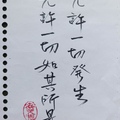 允許一切發生
允許一切如其所是